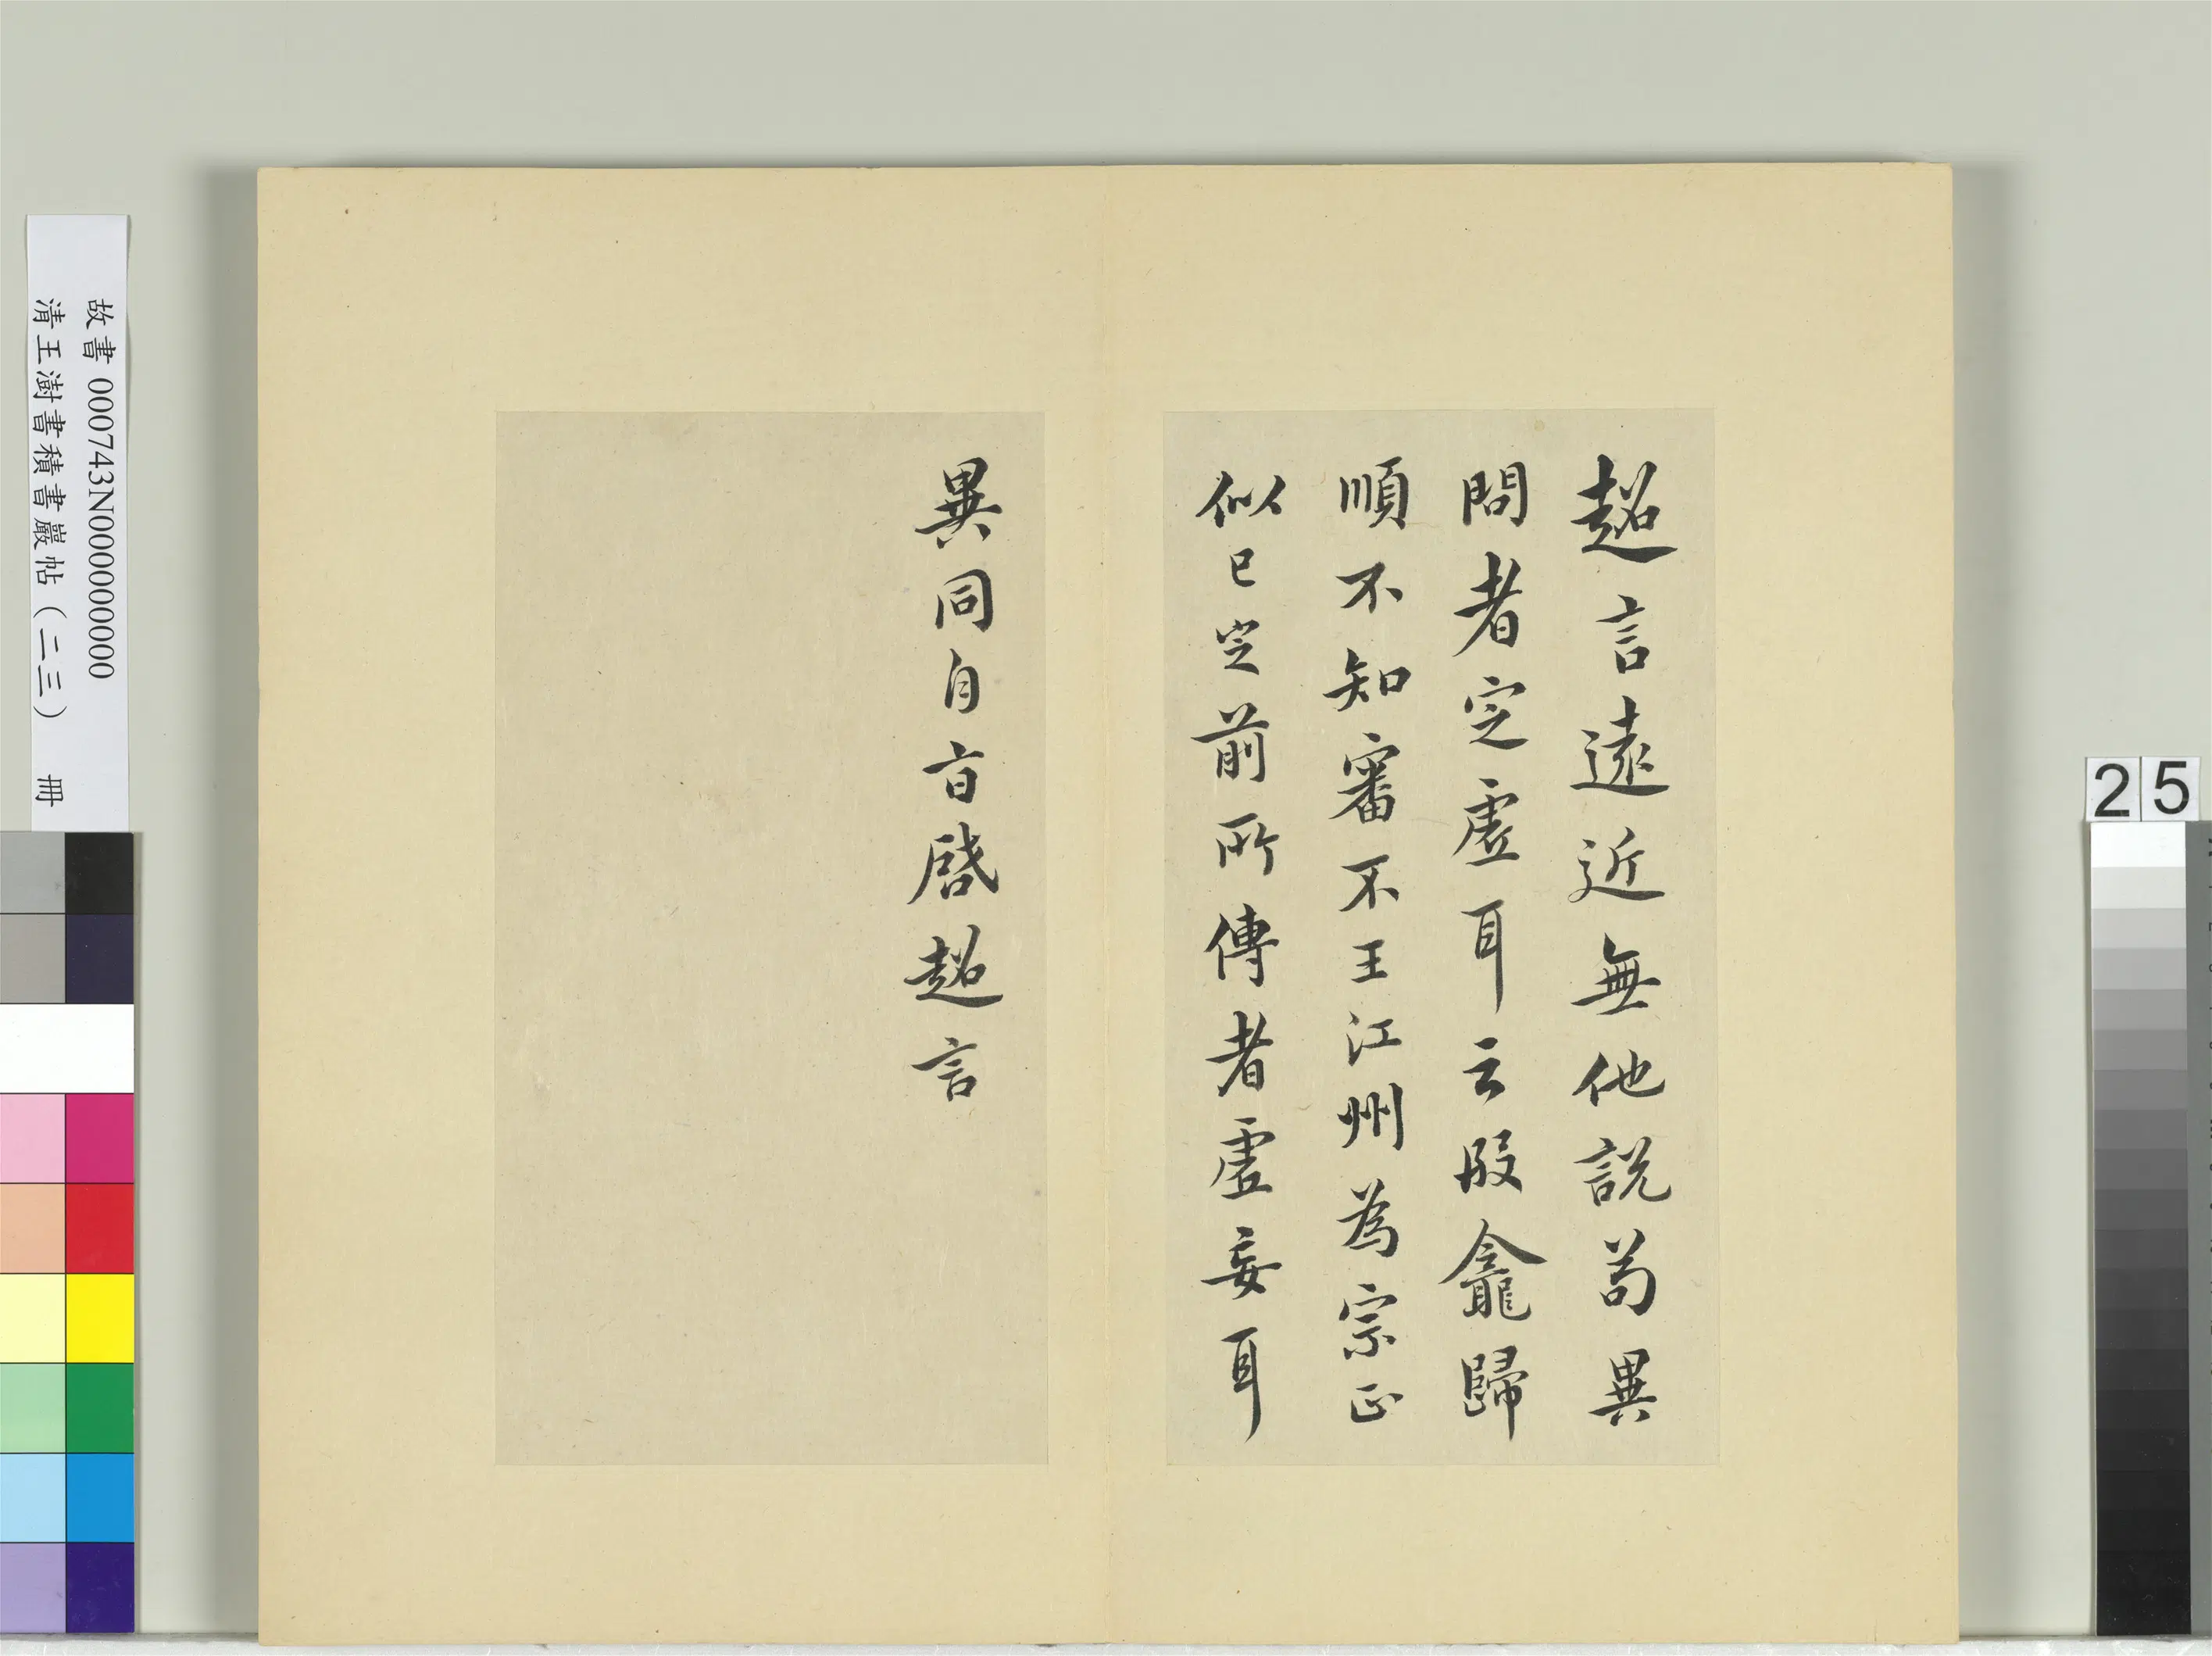 超言遠近無他說苟異
問者定虛耳云殷龕歸
順不知審不王江州為宗正
似已定前所傳者虛妄耳
異同自旨啟超言
故書 000743N000000000
清王澍書積書巖帖（二三） 冊
25